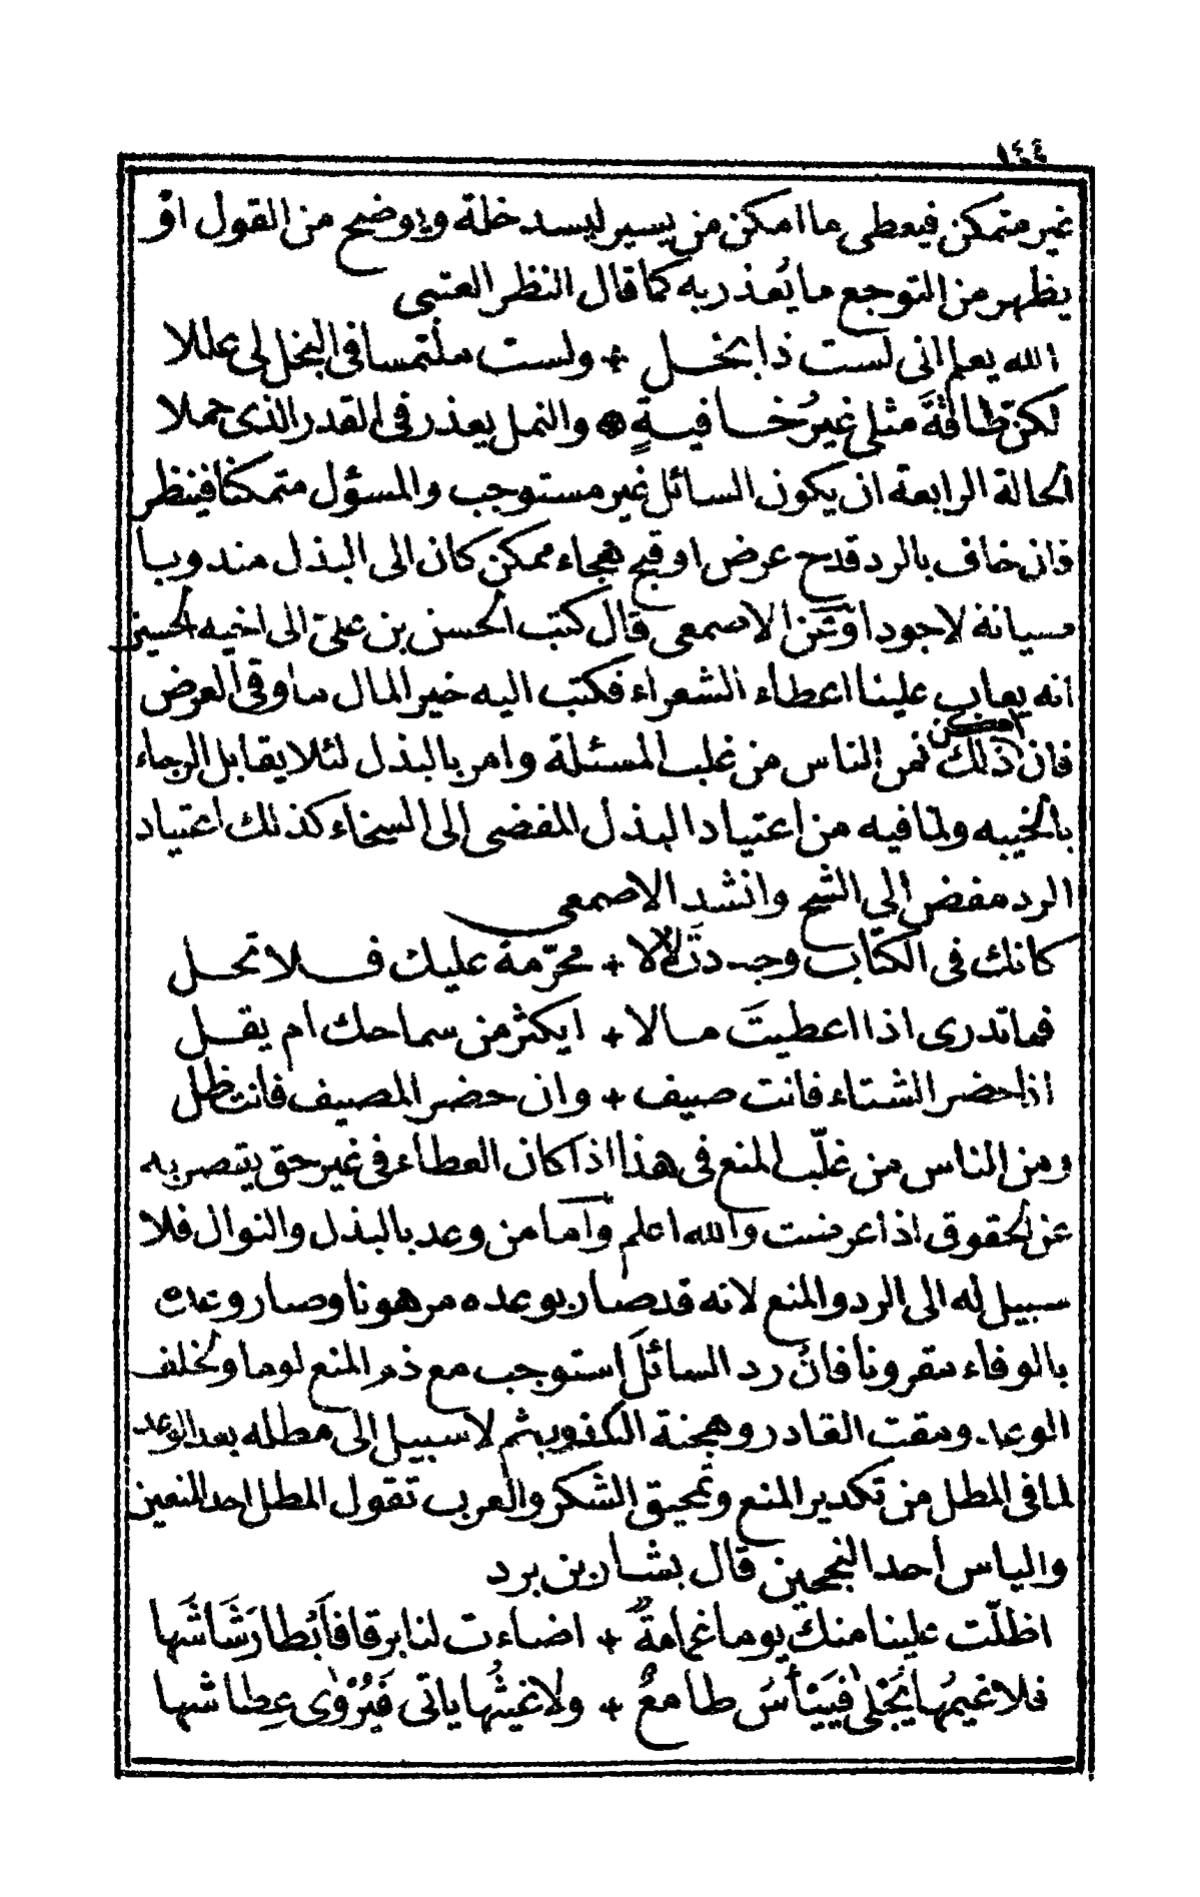 ١٤٤
غير متمكن فيعطى ما امكن من يسير ليسد خلة ويوضح من القول او
يظهر من التوجع ما يُعذر به كما قال النظر العتبى
الله يعلم انى لست ذا بخل + ولست ملتمسا فى البخل لى عللا
لكن طاقةَ مثلى غيرُ خافيةٍ والنمل يعذر فى القدر الذى حملا
الحالة الرابعة ان يكون السائل غير مستوجب والمسؤل متمكنا فينظر
فان خاف بالرد قدح عرض او قبح هجاء ممكن كان الى البذل مندوبا
صيانة لا جودا وعن الاصمعى قال كتب الحسن بن علىّ الى اخيه الحسين
انه يعاب علينا اعطاء الشعراء فكتب اليه خير المال ما وقى العرض
فان امكن ذلك فمن الناس من غلب المسئلة وامر بالبذل لئلا يقابل الرجاء
بالخيبه ولما فيه من اعتياد البذل المفضى الى السخاء كذلك اعتياد
الرد مفض الى الشح وانشد الاصمعى
كانك فى الكتاب وجدتَ لالا + محرّمة عليك فلا تحل
فما تدرى اذا اعطيتَ مالا + ايكثر من سماحك ام يقل
اذا حضر الشتاء فانت صيف + وان حضر المصيف فانت ظل
ومن الناس من غلّب المنع فى هذا اذا كان العطاء فى غير حق يتصر به
عن الحقوق اذا عرضت والله اعلم واما من وعد بالبذل والنوال فلا
سبيل له الى الرد والمنع لانه قد صار بوعده مرهونا وصار وعده
بالوفاء مقرونا فان رد السائل استوجب مع ذم المنع لوما ولخلف
الوعد ومقت القادر وهجنة الكفو به ثم لا سبيل الى مطله بعد الوعد
لما فى المطل من تكدير المنع وتمحيق الشكر والعرب تقول المطل احد المنعين
والياس احد النجحين قال بشار بن برد
اظلّت علينا منك يوما غمامةٌ + اضاءت لنا برقا فأبْطا رَشَاشَها
فلا غيمُها يَجْلى فَيَيْأَسُ طامعٌ + ولا غيثُها ياتى فَيُرْوٰى عِطاشها